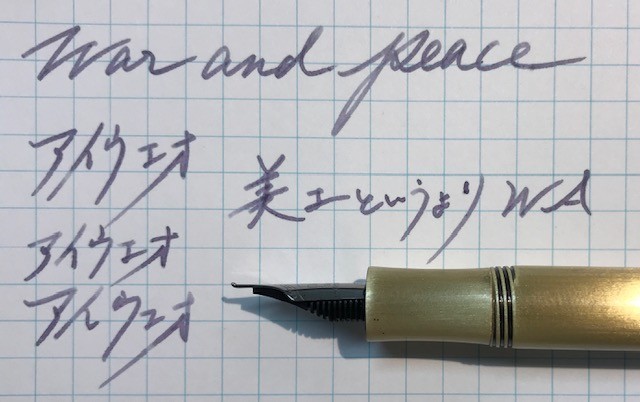 War and peace
アイウエオ
美エというより WA
アイウエオ
アイウエオ